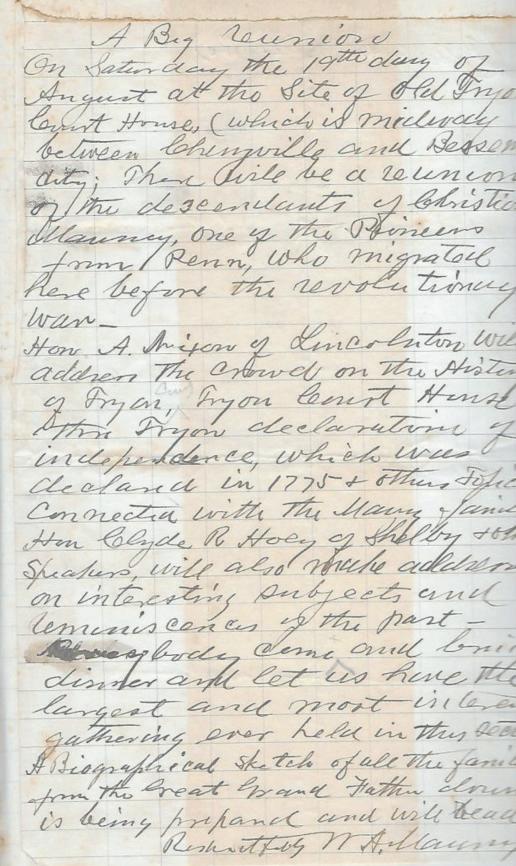 A Big reunion
On Saturday the 19th day of
August at the Site of Old Tryo
Court House, (which is midway
between Cherryville and Bessem
city; There will be a reunion
of the descendants of Christia
Mauney, one of the Pioneers
from Penn, who migrated
here before the revolutionary
war —
Hon A. Nixon of Lincolnton wil
address the crowd on the Histor
of Tryon, Tryon Court House
& the Tryon declaration of
independence, which was
declared in 1775 & others topic
connected with the Mauny famil
Hon Clyde R Hoey of Shelby & oth
Speakers, will also make address
on interesting subjects and
reminiscences of the past —
body come and brin
dinner and let us have the
largest and most intere
gathering ever held in this sect
A Biographical Sketch of all the famil
from the Great Grand Father down
is being prepared and will be ad
Respectfully W A. Mauny